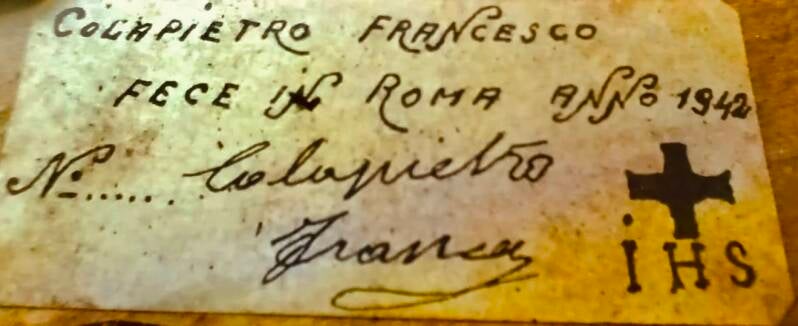 COLAPIETRO FRANCESCO
FECE IN ROMA ANNO 1942
No...... Colapietro
Franco
IHS